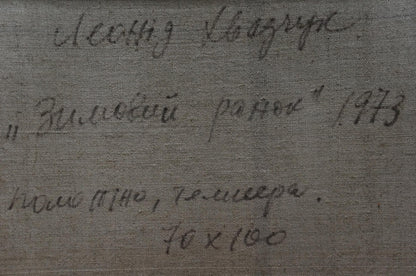 Леонід Хвазчук
„Зимовий ранок" 1973
полотно, темпера.
70 x 100